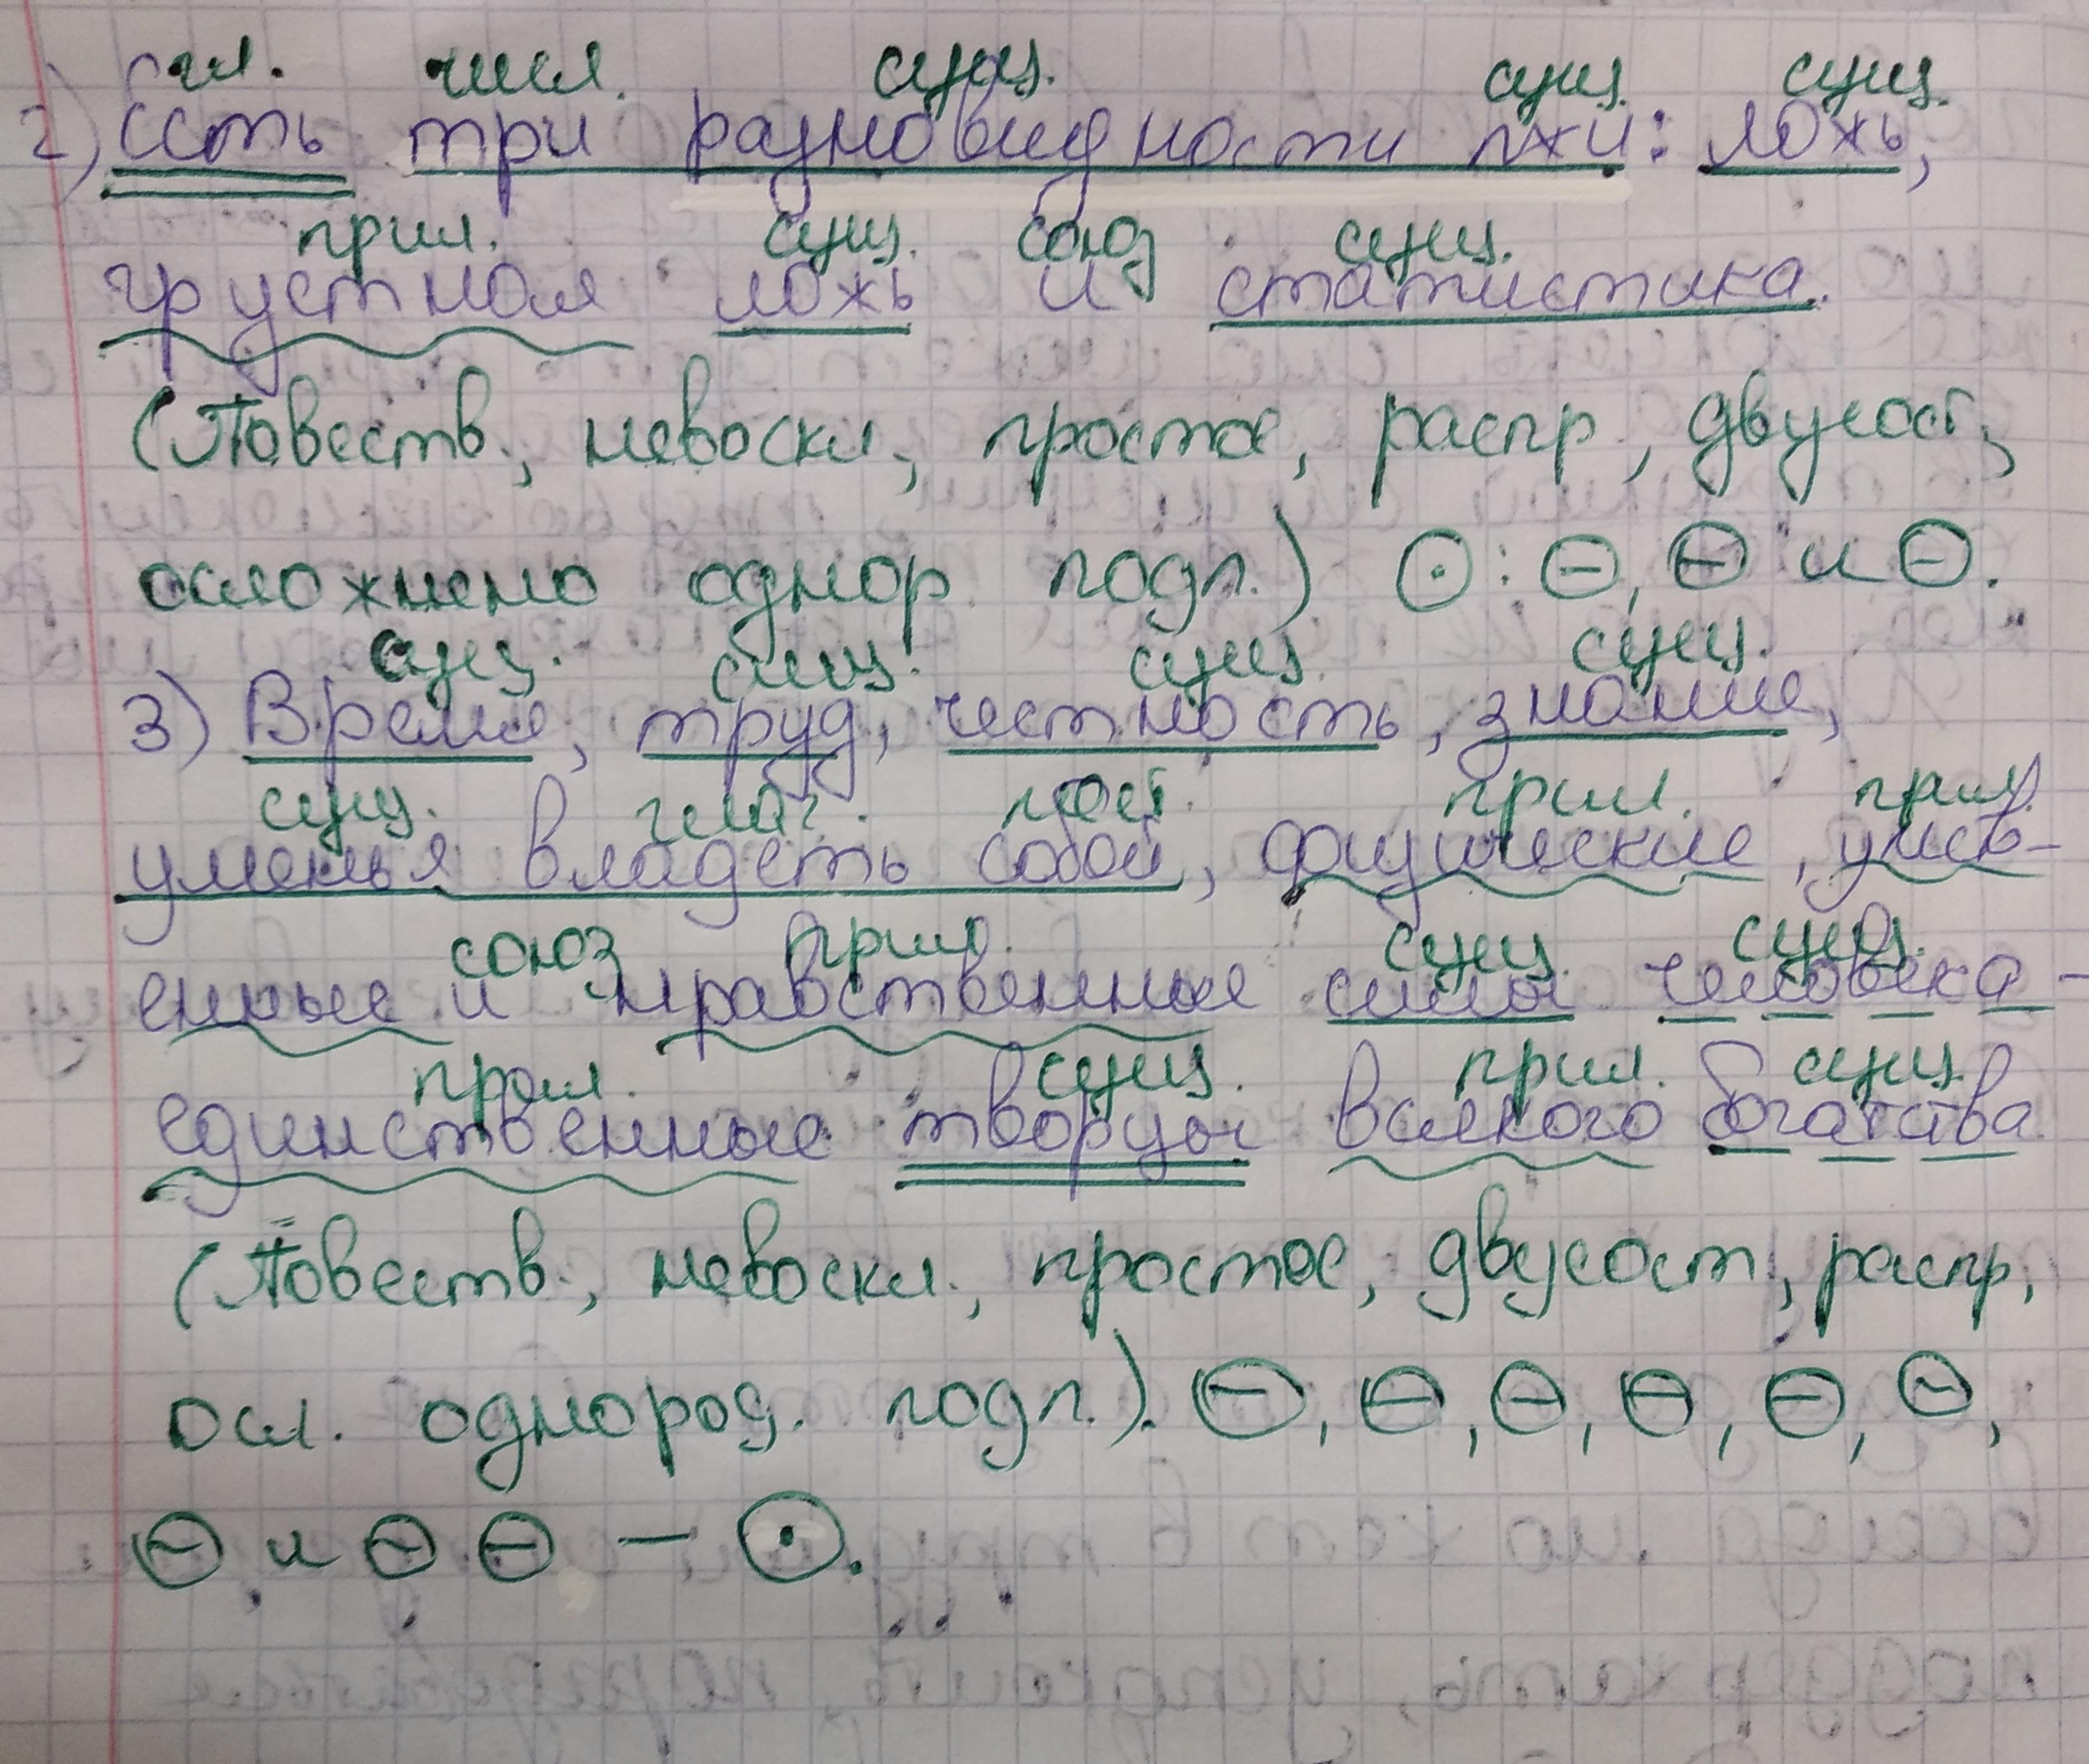 гл. числ. сущ. сущ. сущ.
2) Есть три разновидности лжи: ложь,
прил. сущ. союз сущ.
грустная ложь и статистика.
(Повеств., невоскл., простое, распр, двусост,
осложнено однор подл.) ⊙: ⊖, ⊖ и ⊖.
сущ. сущ. сущ. сущ.
3) Время, труд, честность, знание,
сущ. глаг. мест. прил. прил.
уменья владеть собой, физические, умств-
союз прил. сущ. сущ.
енные и нравственные силы человека -
прил. сущ. прил. сущ.
единственные творцы всякого богатства
(Повеств., невоскл., простое, двусост, распр,
осл. однород. подл.). ⊖, ⊖, ⊖, ⊖, ⊖, ⊖,
⊖ и ⊖ ⊖ — ⊙.